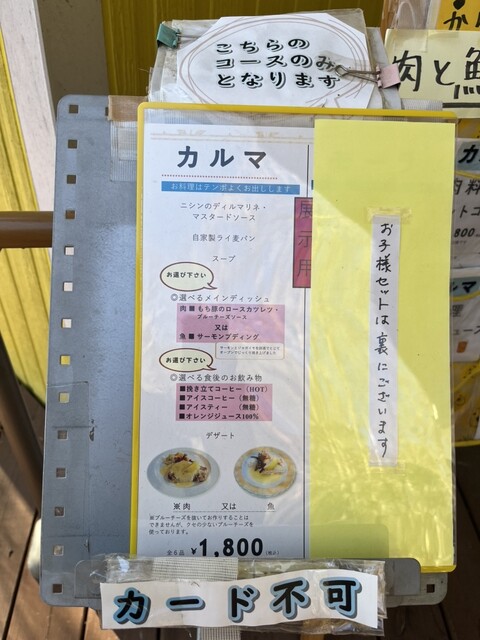 こちらの
コースのみ
となります
カルマ
お料理はテンポよくお出しします
ニシンのディルマリネ・
マスタードソース
自家製ライ麦パン
スープ
お選び下さい
◎選べるメインディッシュ
肉 ■ もち豚のロースカツレツ・
ブルーチーズソース
又は
魚 ■ サーモンプディング
お選び下さい
◎選べる食後のお飲み物
■挽き立てコーヒー（HOT）
■アイスコーヒー（無糖）
■アイスティー（無糖）
■オレンジジュース100%
デザート
※肉 又は 魚
※ブルーチーズを抜いてお作りすることは
できませんが、クセの少ないブルーチーズを
使っております。
全6品 ¥1,800（税込）
展示用
お子様セットは裏にございます
カード不可
肉と